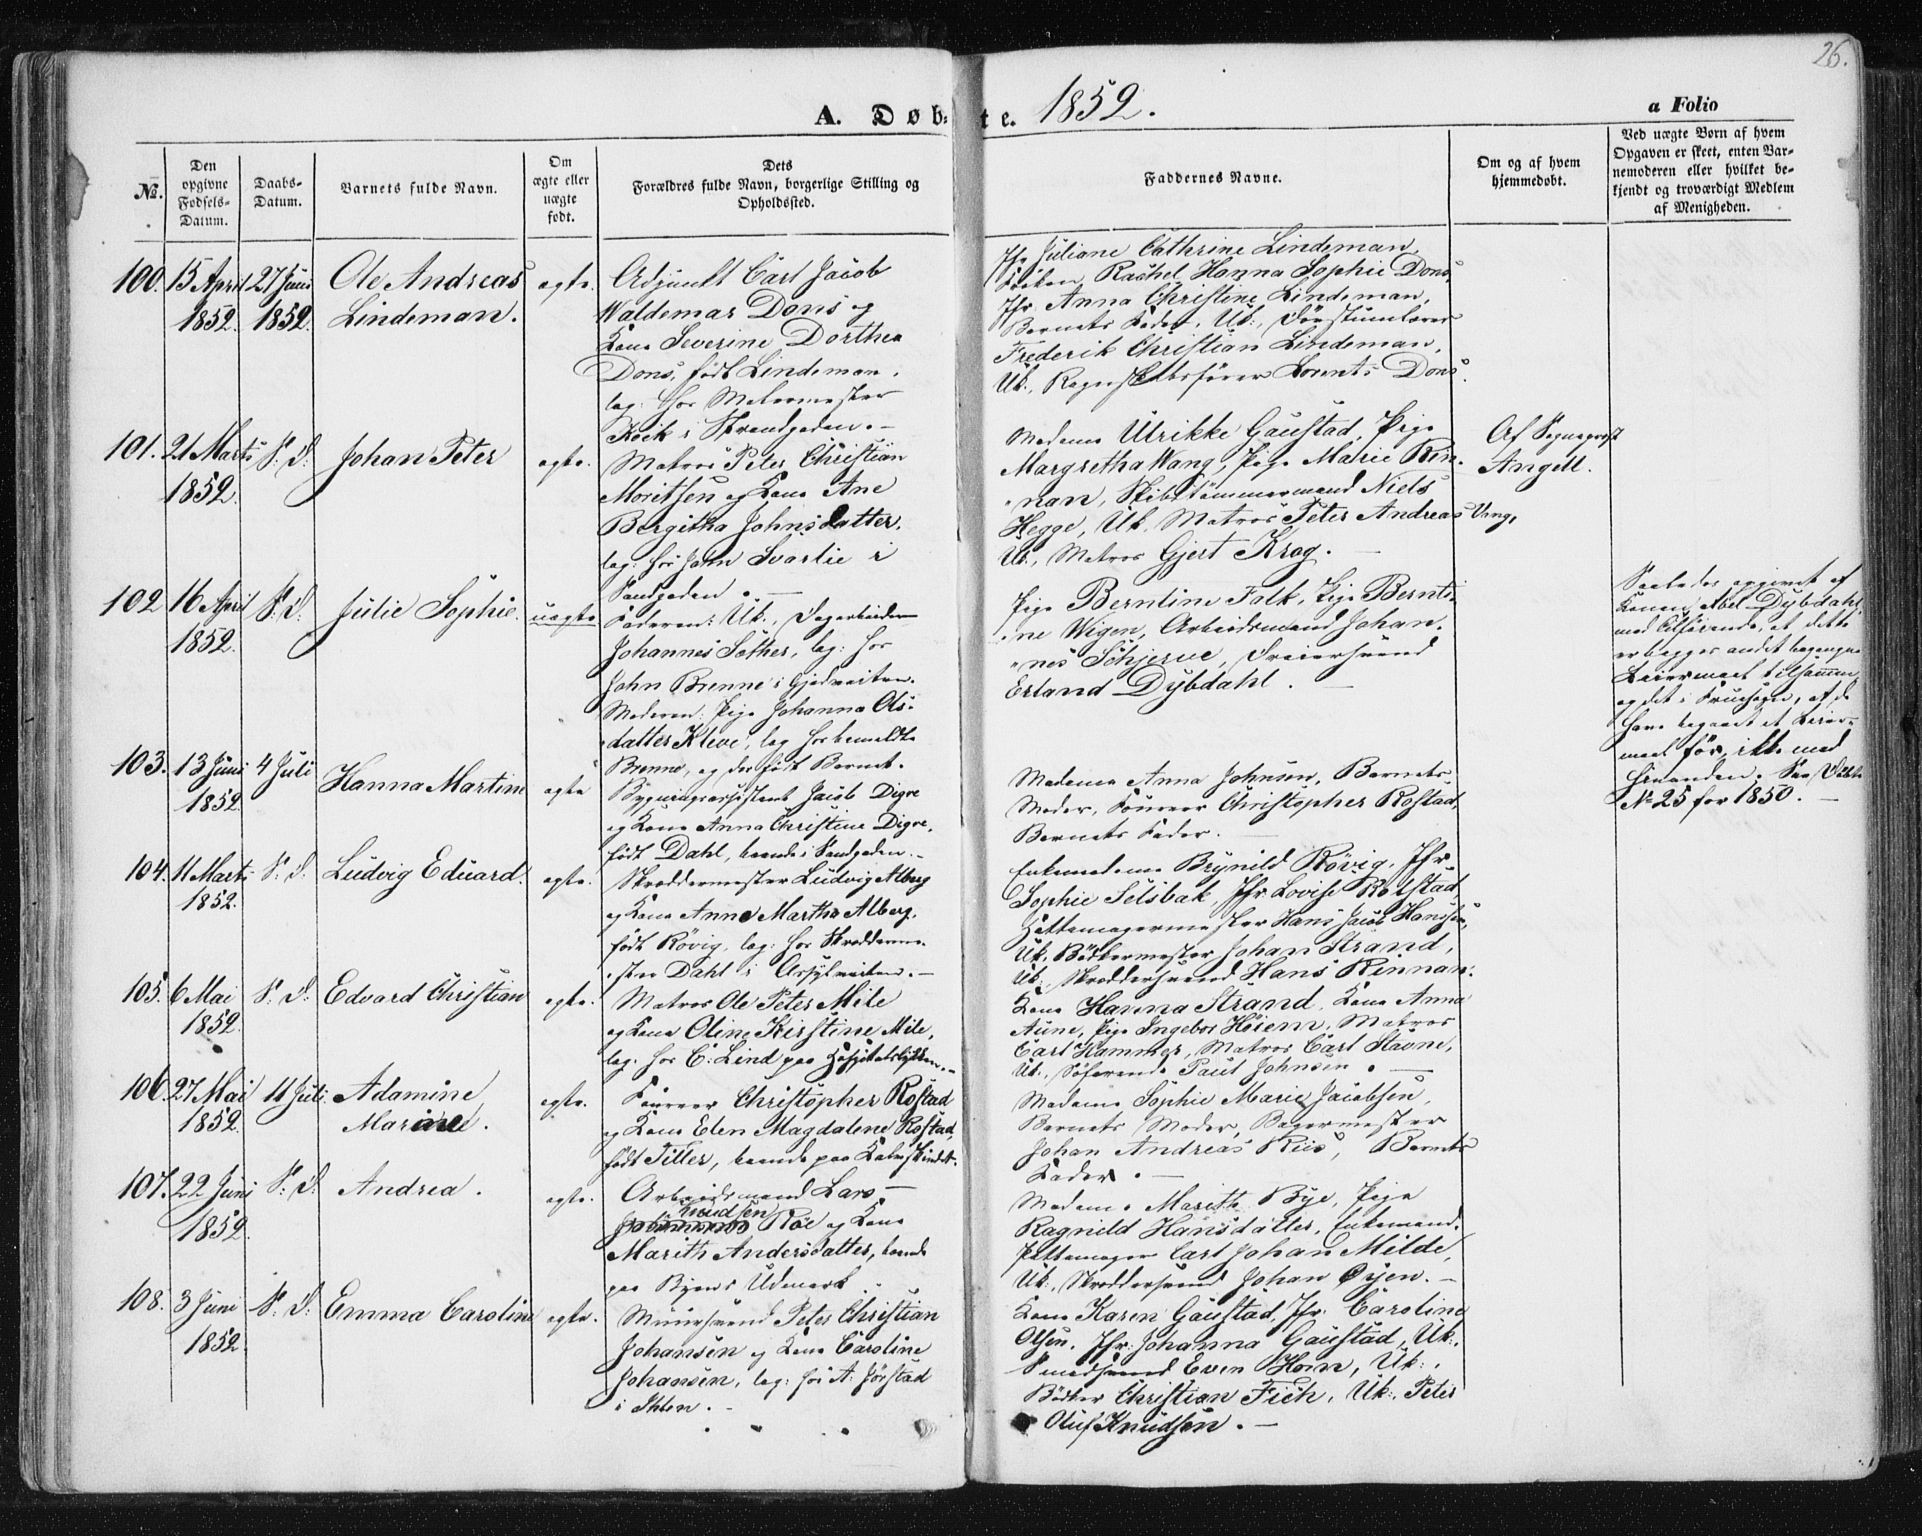 26.
A. Døb-te. 1852.
a Folio
№.
Den opgivne Fødsels-Datum.
Daabs-Datum.
Barnets fulde Navn.
Om ægte eller uægte født.
Dets Forældres fulde Navn, borgerlige Stilling og Opholdssted.
Faddernes Navne.
Om og af hvem hjemmedøbt.
Ved uægte Børn af hvem Opgaven er skeet, enten Barnemoderen eller hvilket bekjendt og troværdigt Medlem af Menigheden.
100. 15 April 1852. 27 Juni 1852. Ole Andreas Lindeman. ægte.
Adjunkt Carl Jacob
Waldemar Dons og
Kone Severine Dorthea
Dons, født Lindeman.
log: hos Malermester
Koek i Strandgaden.
Jfr Juliane Cathrine Lindeman,
Frøken Rachel Hanna Sophie Dons,
Jfr. Anna Christine Lindeman,
Barnets Fader, Uk., Døvstumlærer
Frederik Christian Lindeman,
Uk., Regnskabsfører Lorents Dons.
101. 21 Marts 1852. S. D. Johan Peter ægte.
Matros Peter Christian
Moritsen og Kone Ane
Bergitha Johnsdatter,
log: hos John Svarlie i
Sandgaden.
Madame Ulrikke Gaustad, Pige
Margretha Wang, Pige Marie Rin-
nan, Skibstømmermand Niels
Hegge, Uk. Matros Peter Andreas Vang,
Uk., Matros Gjert Krog.
Af Sogneprest
Angell.
102 16 April 1852. S. D. Julie Sophie. uægte
Faderen: Uk., Dagarbeider
Johannes Sother, log: hos
John Brenne i Gjedveiten.
Moderen: Pige Johanna Ols-
datter Kleve, log hos bemeldte
Brenne, og der født Barnet.
Pige Berntine Falk, Pige Bernti-
ne Wigen, Arbeidsmand Johan-
nes Schjerve, Dreiersvend
Erland Dybdahl.
Saaledes opgivet af
Konen Abel Dybdahl,
med Tilføiende, at dette
er begges andet begangne
Leiermaal tilsammen,
og det i Fruesogn, at de
have begaaet et Leier-
maal før, ikke med
hinanden. See Døbte
№ 25 for 1850.
103. 13 Juni 1852. 4 Juli Hanna Martine ægte
Bygningsassistent Jacob Digre
og Kone Anna Christine Digre,
født Dahl, boende i Sandgaden.
Madame Anna Johnsen, Barnets
Moder, Foureer Christopher Rostad,
Barnets Fader.
104. 11 Marts 1852. S. D. Ludvig Eduard. ægte.
Skræddermester Ludvig Alberg
og Kone Anne Martha Alberg,
født Røvig, log: hos Skrædderme-
ster Dahl i Asylveiten.
Enkemadame Brynild Røvig, Jfr.
Sophie Selsbak, Jfr Lovise Rolstad,
Hattemagermester Hans Jacob Hansen,
Uk. Bødkermester Johan Strand,
Uk. Skræddersvend Hans Rinnan.
105. 6 Mai 1852. S. D. Edvard Christian ægte.
Matros Ole Peter Mile
og Kone Oline Kirstine Mile,
log: hos C. Lind paa Hospitalsløkken.
Kone Hanna Strand, Kone Anna
Aune, Pige Ingebor Høiem, Matros
Carl Hammer, Matros Carl Stavne,
Uk., Søfarende Paul Johnsen.
106 27 Mai 1852. 11 Juli. Adamine Marine. ægte.
Foureer Christopher Rostad
og Kone Elen Magdalene Rostad,
født Tiller, boende paa Kalvskindet.
Madame Sophie Marie Jacobsen,
Barnets Moder, Bagermester
Johan Andreas Riis, Barnets
Fader.
107. 22 Juni 1852. S. D. Andrea. ægte.
Arbeidsmand Lars
Knudsen Roe og Kone
Marith Andersdatter, boende
paa Byens Udmark.
Madame Marith Bye, Pige
Ragnild Hansdatter, Enkemand,
Pottemager Carl Johan Milde,
Uk., Skræddersvend Johan Øyen.
108. 3 Juni 1852 S. D. Emma Caroline ægte.
Muursvend Peter Christian
Johansen og Kone Caroline
Johansen, log: hos A: Jørstad
i Ihlen.
Kone Karen Gaustad, Jfr. Caroline
Olsen, Jfr. Johanna Gaustad, Uk.,
Smedsvend Even Horn, Uk.
Bødker Christian Fich, Uk., Peter
Oluf Knudsen.